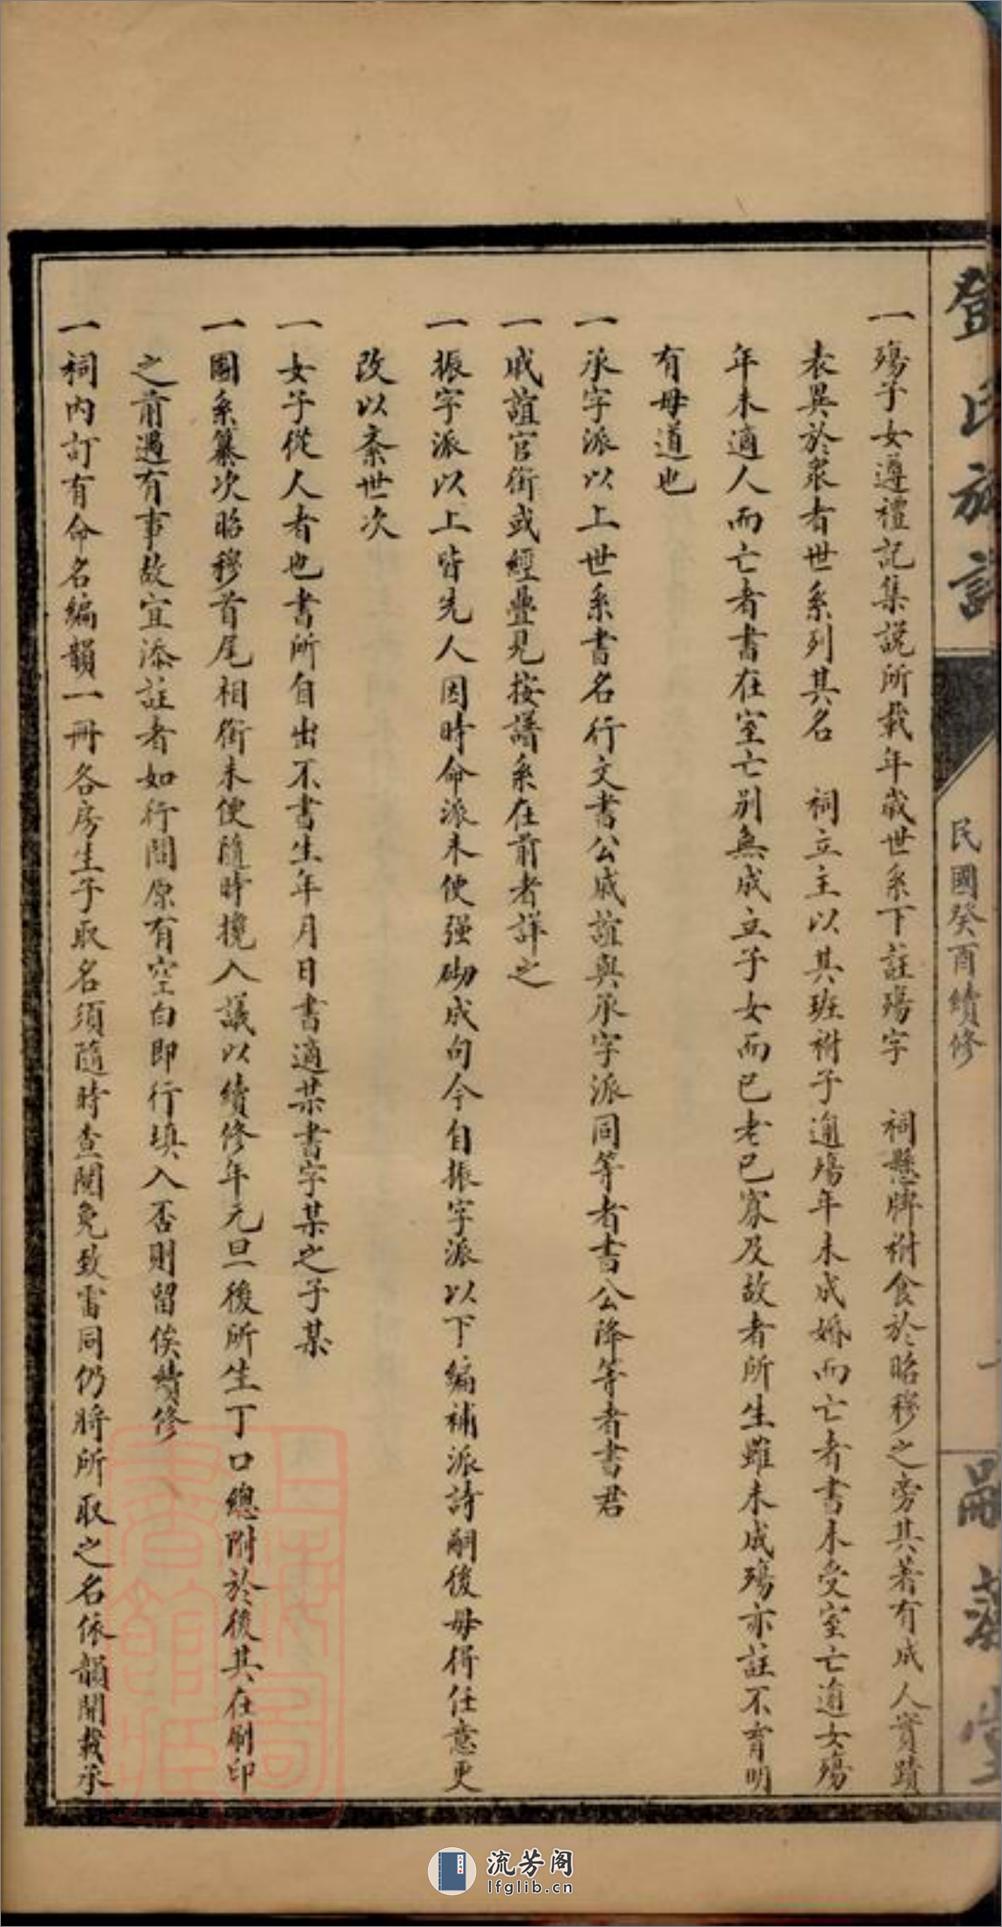 鄧氏族譜
民國癸酉續修
嗣
堂
一殤子女遵禮記集説所載年歲世系下註殤字　祠懸牌祔食於昭穆之旁其著有成人實蹟
表異於衆者世系列其名　祠立主以其班祔子逾殤年未成婚而亡者書未受室亡逾女殤
年未適人而亡者書在室亡別無成立子女而已老已寡及故者所生雖未成殤亦註不育明
有母道也
一承字派以上世系書名行文書公戚誼與承字派同等者書公降等者書君
一戚誼官銜或經疊見按譜系在前者詳之
一振字派以上皆先人因時命派未便强砌成句今自振字派以下編補派詩嗣後毋得任意更
改以紊世次
一女子從人者也書所自出不書生年月日書適某書字某之子某
一圖系纂次昭穆首尾相銜未便隨時攙入議以續修年元旦後所生丁口總附於後其在刷印
之前遇有事故宜添註者如行間原有空白即行填入否則留俟續修
一祠内訂有命名編韻一冊各房生子取名須隨時查閱免致雷同仍將所取之名依韻開載承
上海圖書館藏
流芳阁
lfglib.cn